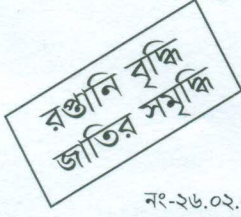 রপ্তানি বৃদ্ধি
জাতির সমৃদ্ধি
নং-২৬.০২.